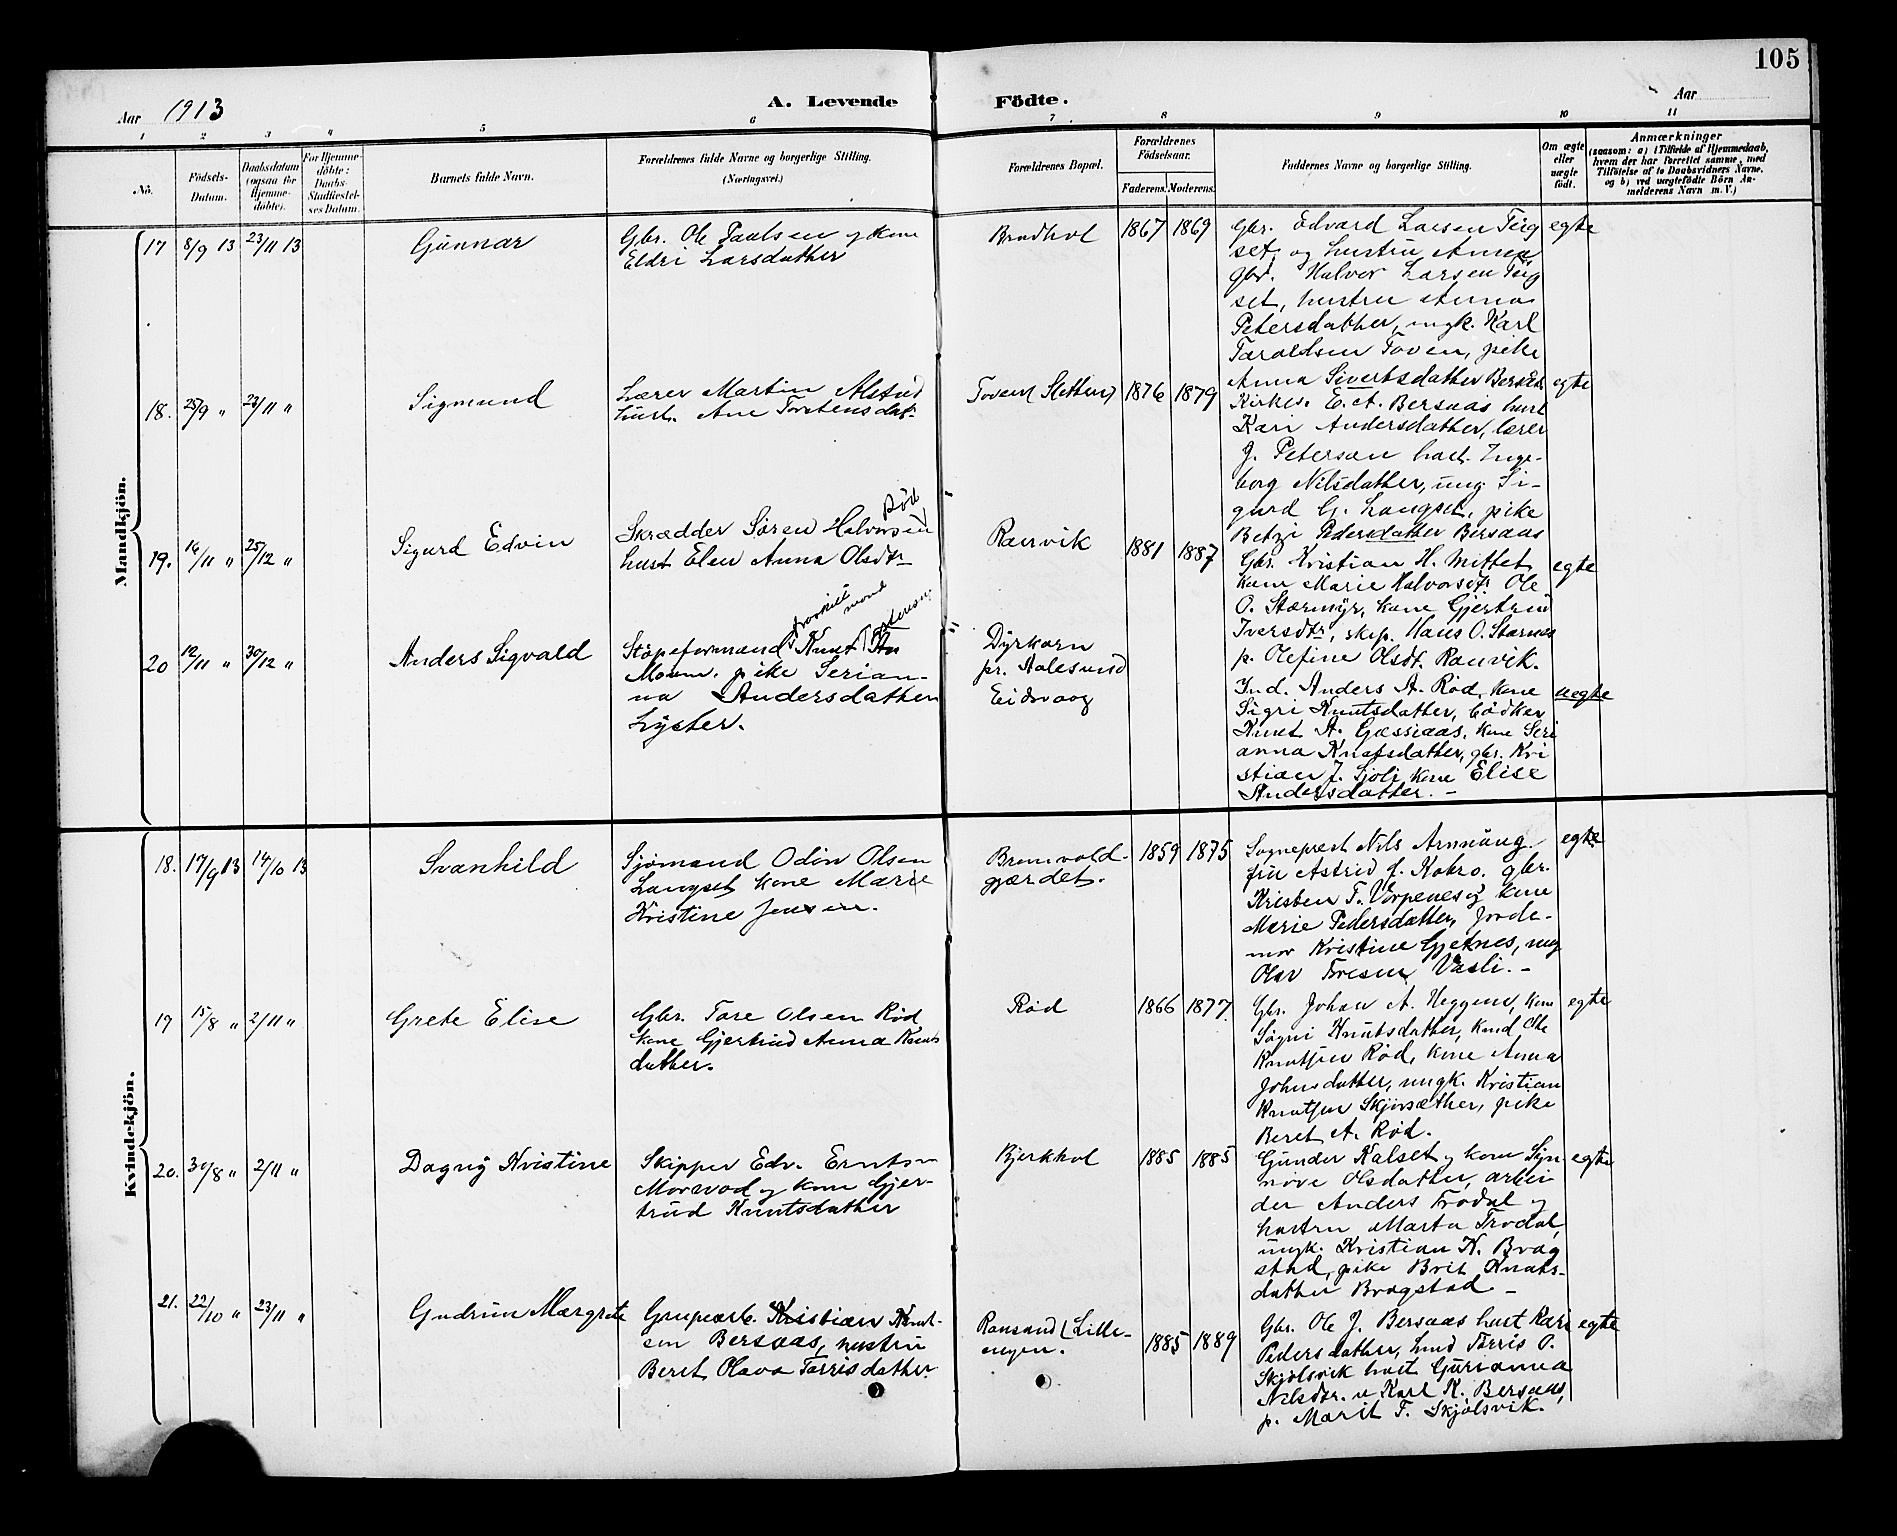 105
Aar 1913
A. Levende Födte.
Aar
1 2 3 4 5 6 7 8 9 10 11
No.
Födsels-Datum.
Daabsdatum (ogsaa for Hjemme-döbte).
For Hjemme-döbte: Daabs-Stadfæstel-ses Datum.
Barnets fulde Navn.
Forældrenes fulde Navne og borgerlige Stilling.
(Næringsvei.)
Forældrenes Bopæl.
Forældrenes Födselsaar.
Faderens. Moderens.
Faddernes Navne og borgerlige Stilling.
Om ægte eller uægte födt.
Anmærkninger
(saasom: a) i Tilfælde af Hjemmedaab, hvem der har forrettet samme, med Tilföielse af to Daabsvidners Navne. og b) ved uægtefödte Börn An-melderens Navn m. V.)
Mandkjön.
17 8/9 13 23/11 13 Gunnar
Gbr. Ole Paulsen og kone
Eldri Larsdatter
1867 1869
Gbr. Edvard Larsen Teig
set, og hustru Anne
gbr. Halvor Larsen Teig
set, hustru Anna
Petersdatter, ungk. Karl
Taraldsen Toven, pike
Anna Sivertsdatter Bersaas
egte
18. 25/9 " 23/11 " Sigmund
Lærer Martin Alstad
hust. Ane Torstensdat.
Toven (Sletten) 1876 1879
Kirkes. E. A. Bersaas hust
Kari Andersdatter, lærer
J. Petersen hust. Inge-
borg Nilsdatter, ung. Si-
gurd G. Langset, pike
Betzi Pedersdatter Bersaas
egte
19. 16/11 " 25/12 " Sigurd Edvin
Skrædder Søren Halvorsen Rød
hust Elen Anna Olsdtr
Ranvik 1881 1887
Gbr. Kristian H. Mittet
kone Marie Halvorsdtr. Ole
O. Stormyr, kone Gjertrud
Iversdtr, skip. Hans O. Starnes
p. Olefine Olsdt. Ranvik.
egte
20 12/11 " 30/12 " Anders Sigvald
Støpeformand Knut
pike Serian-
na Andersdatter
Lyster.
Dyrkorn
pr. Aalesund
Eidsvaag
Ind. Anders A. Rød, kone
Sigri Knutsdatter, bødker
Knut A. Gussiaas, kone Seri
anna Knutsdatter, gbr. Kri
stian J. Sjøli kone Elise
Andersdatter. -
uegte
Kvindekjön.
18. 17/9 13 19/10 13 Svanhild
Sjømand Odin Olsen
Langset kone Marie
Kristine Jensen.
Bremvold-
gjærdet. 1859 1875
Sogneprest Nils
fru Astrid f. gbr.
Kristen T. Vorpenes og kone
Marie Pedersdatter, jorde-
mor Kristine Gjetnes, ung
Olav Toresen Vasli. -
egte
19 15/8 " 2/11 " Grete Elise
Gbr. Tore Olsen Rød
kone Gjertrud Anna Knuts
datter.
Rød 1866 1877
Gbr. Johan A. Heggem, kone
Sigri Knutsdatter, kmd Ole
Knutsen Rød, kone Anna
Johnsdatter, ungk. Kristian
Knutsen Skjørsæther, pike
Beret A. Rød.
egte
20. 30/8 " 2/11 " Dagny Kristine
Skipper Edv. Erntsen
Morvod og kone Gjer-
trud Knutsdatter
Bjerkhol 1885 1885
Gunder Kalset og kone Syn
nøve Olsdatter, arbei-
der Anders Trodal og
hustru Marta Trodal
ungk. Kristian K. Brag
stad, pike Brit Knuts-
datter Bragstad -
egte
21. 22/10 " 23/11 " Gudrun Margrete
Grupearb. Kristian Knut-
sen Bersaas, hustru
Beret Olava Tarrisdatter
Ransund (Lille-
engen. 1885 1889
Gbr. Ole J. Bersaas hust Kari
Pedersdatter, kmd Tarris O.
Skjølsvik hust Gurianna
Nilsdtr. u Karl K. Bersaas,
p. Marit T. Skjølsvik.
egte